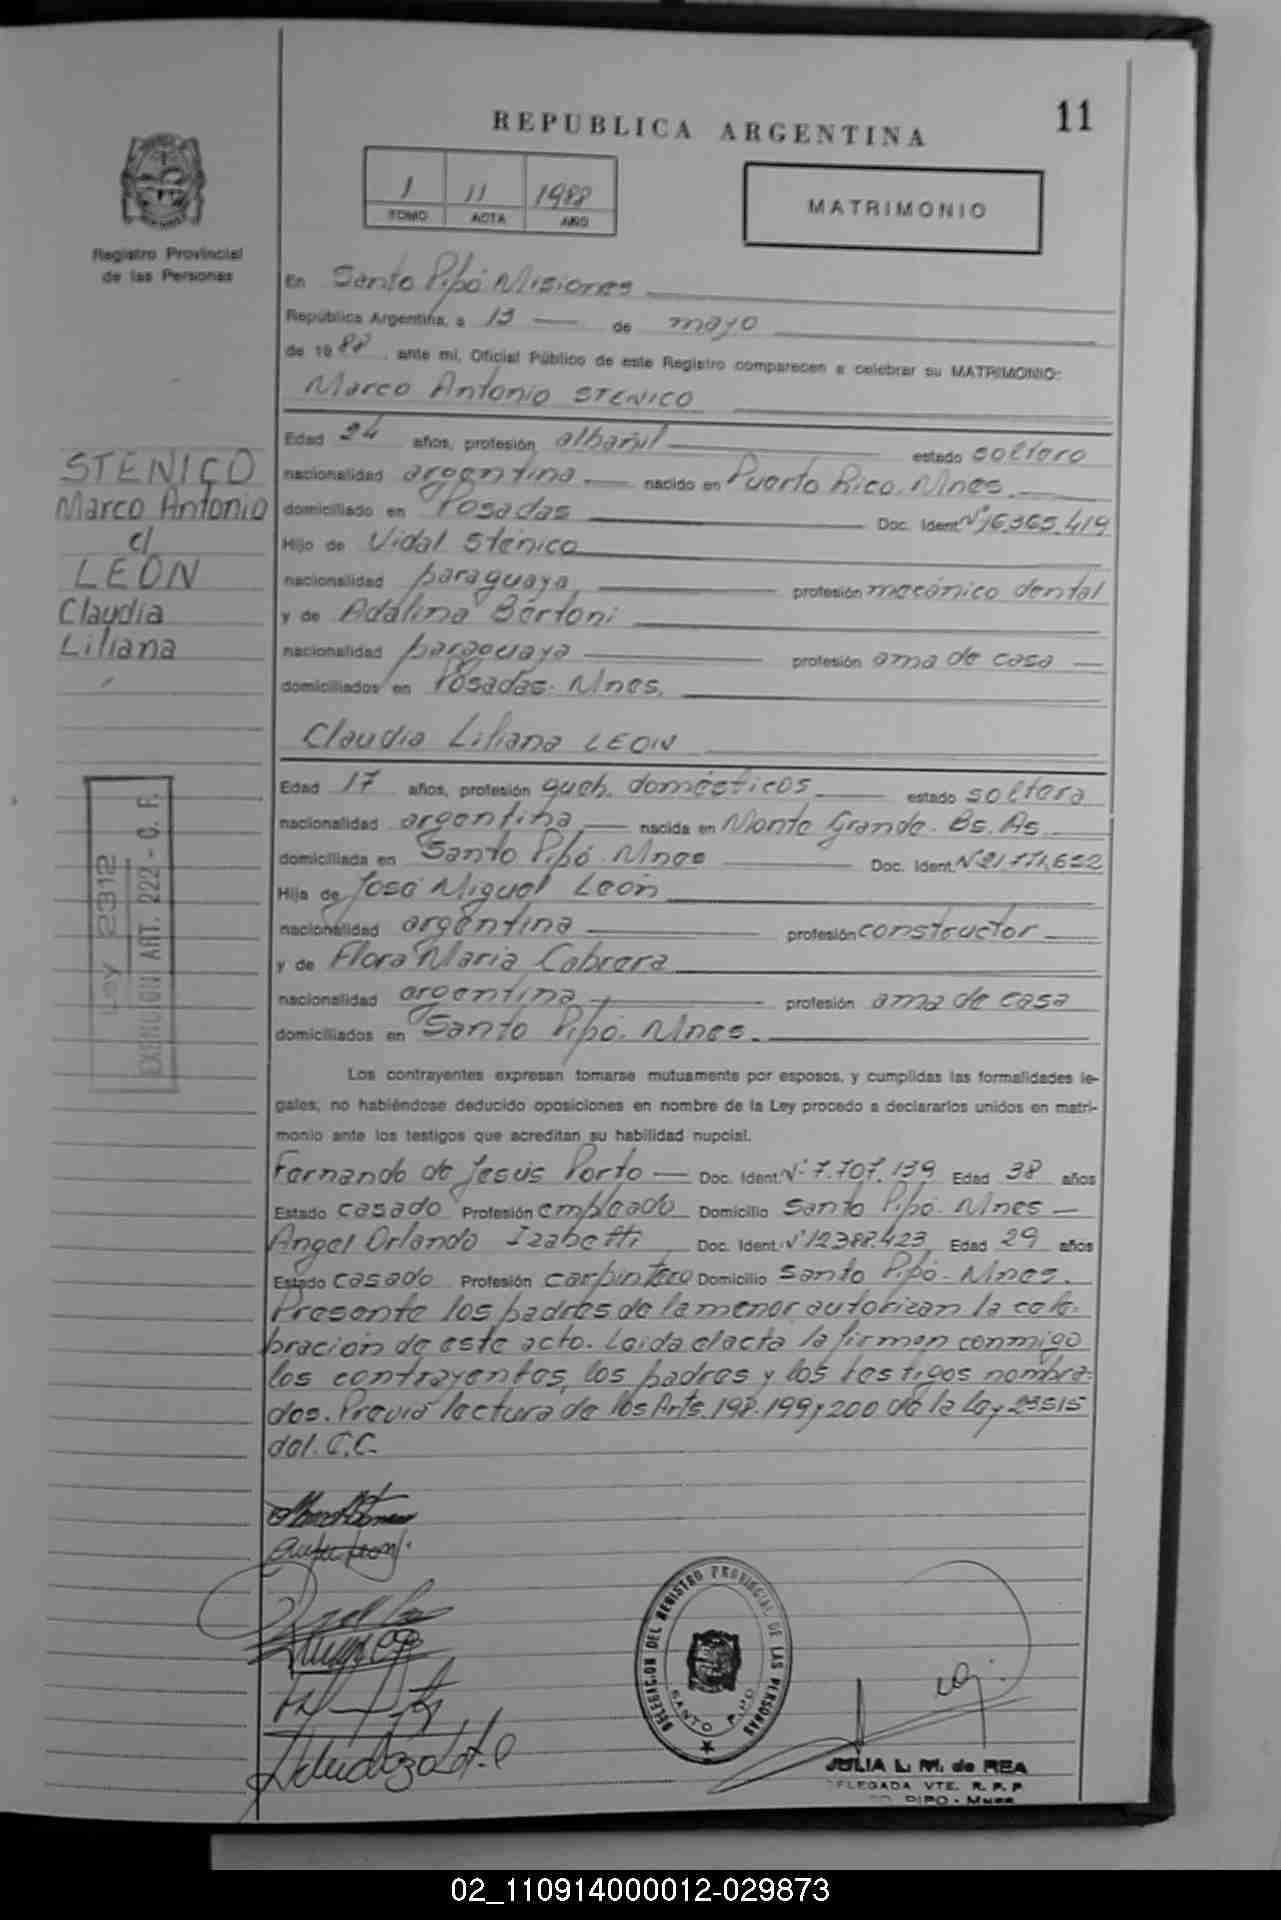 REPUBLICA ARGENTINA
11
1 11 1988
TOMO ACTA AÑO
MATRIMONIO
Registro Provincial
de las Personas
En Santo Pipó Misiones
República Argentina, a 13 de mayo
de 1988, ante mi, Oficial Público de este Registro comparecen a celebrar su MATRIMONIO:
Marco Antonio STENICO
Edad 24 años, profesión albañil estado soltero
nacionalidad argentina nacido en Puerto Rico. Mnes.
domiciliado en Posadas Doc. Ident. Nº 16.365.419
Hijo de Vidal Sténico
nacionalidad paraguaya profesión mecánico dental
y de Adalina Bértoni
nacionalidad paraguaya profesión ama de casa
domiciliados en Posadas. Mnes.
STENICO
Marco Antonio
c/
LEON
Claudia
Liliana
Claudia Liliana LEON
Edad 17 años, profesión queh. domésticos estado soltera
nacionalidad argentina nacida en Monte Grande. Bs. As.
domiciliada en Santo Pipó. Mnes Doc. Ident. Nº 21.771.652
Hija de José Miguel León
nacionalidad argentina profesión constructor
y de Flora Maria Cabrera
nacionalidad argentina profesión ama de casa
domiciliados en Santo Pipó. Mnes.
Ley 2312
EXENCION ART. 222 - C. F.
Los contrayentes expresan tomarse mutuamente por esposos, y cumplidas las formalidades le-
gales, no habiéndose deducido oposiciones en nombre de la Ley procedo a declararlos unidos en matri-
monio ante los testigos que acreditan su habilidad nupcial.
Fernando de Jesús Porto Doc. Ident. Nº 7.707.139 Edad 38 años
Estado casado Profesión empleado Domicilio Santo Pipó. Mnes
Angel Orlando Izabetti Doc. Ident. Nº 12.388.423 Edad 29 años
Estado casado Profesión carpintero Domicilio Santo Pipó. Mnes.
Presente los padres de la menor autorizan la cele-
bración de este acto. Leida el acta la firman conmigo
los contrayentes, los padres y los testigos nombra-
dos. Previa lectura de los Arts. 198. 199 y 200 de la Ley 23515
del. C.C.
DELEGACION DEL REGISTRO PROVINCIAL DE LAS PERSONAS
SANTO PIPO
JULIA L. M. de REA
DELEGADA VTE. R. P. P
PIPO - Mnes
02_110914000012-029873